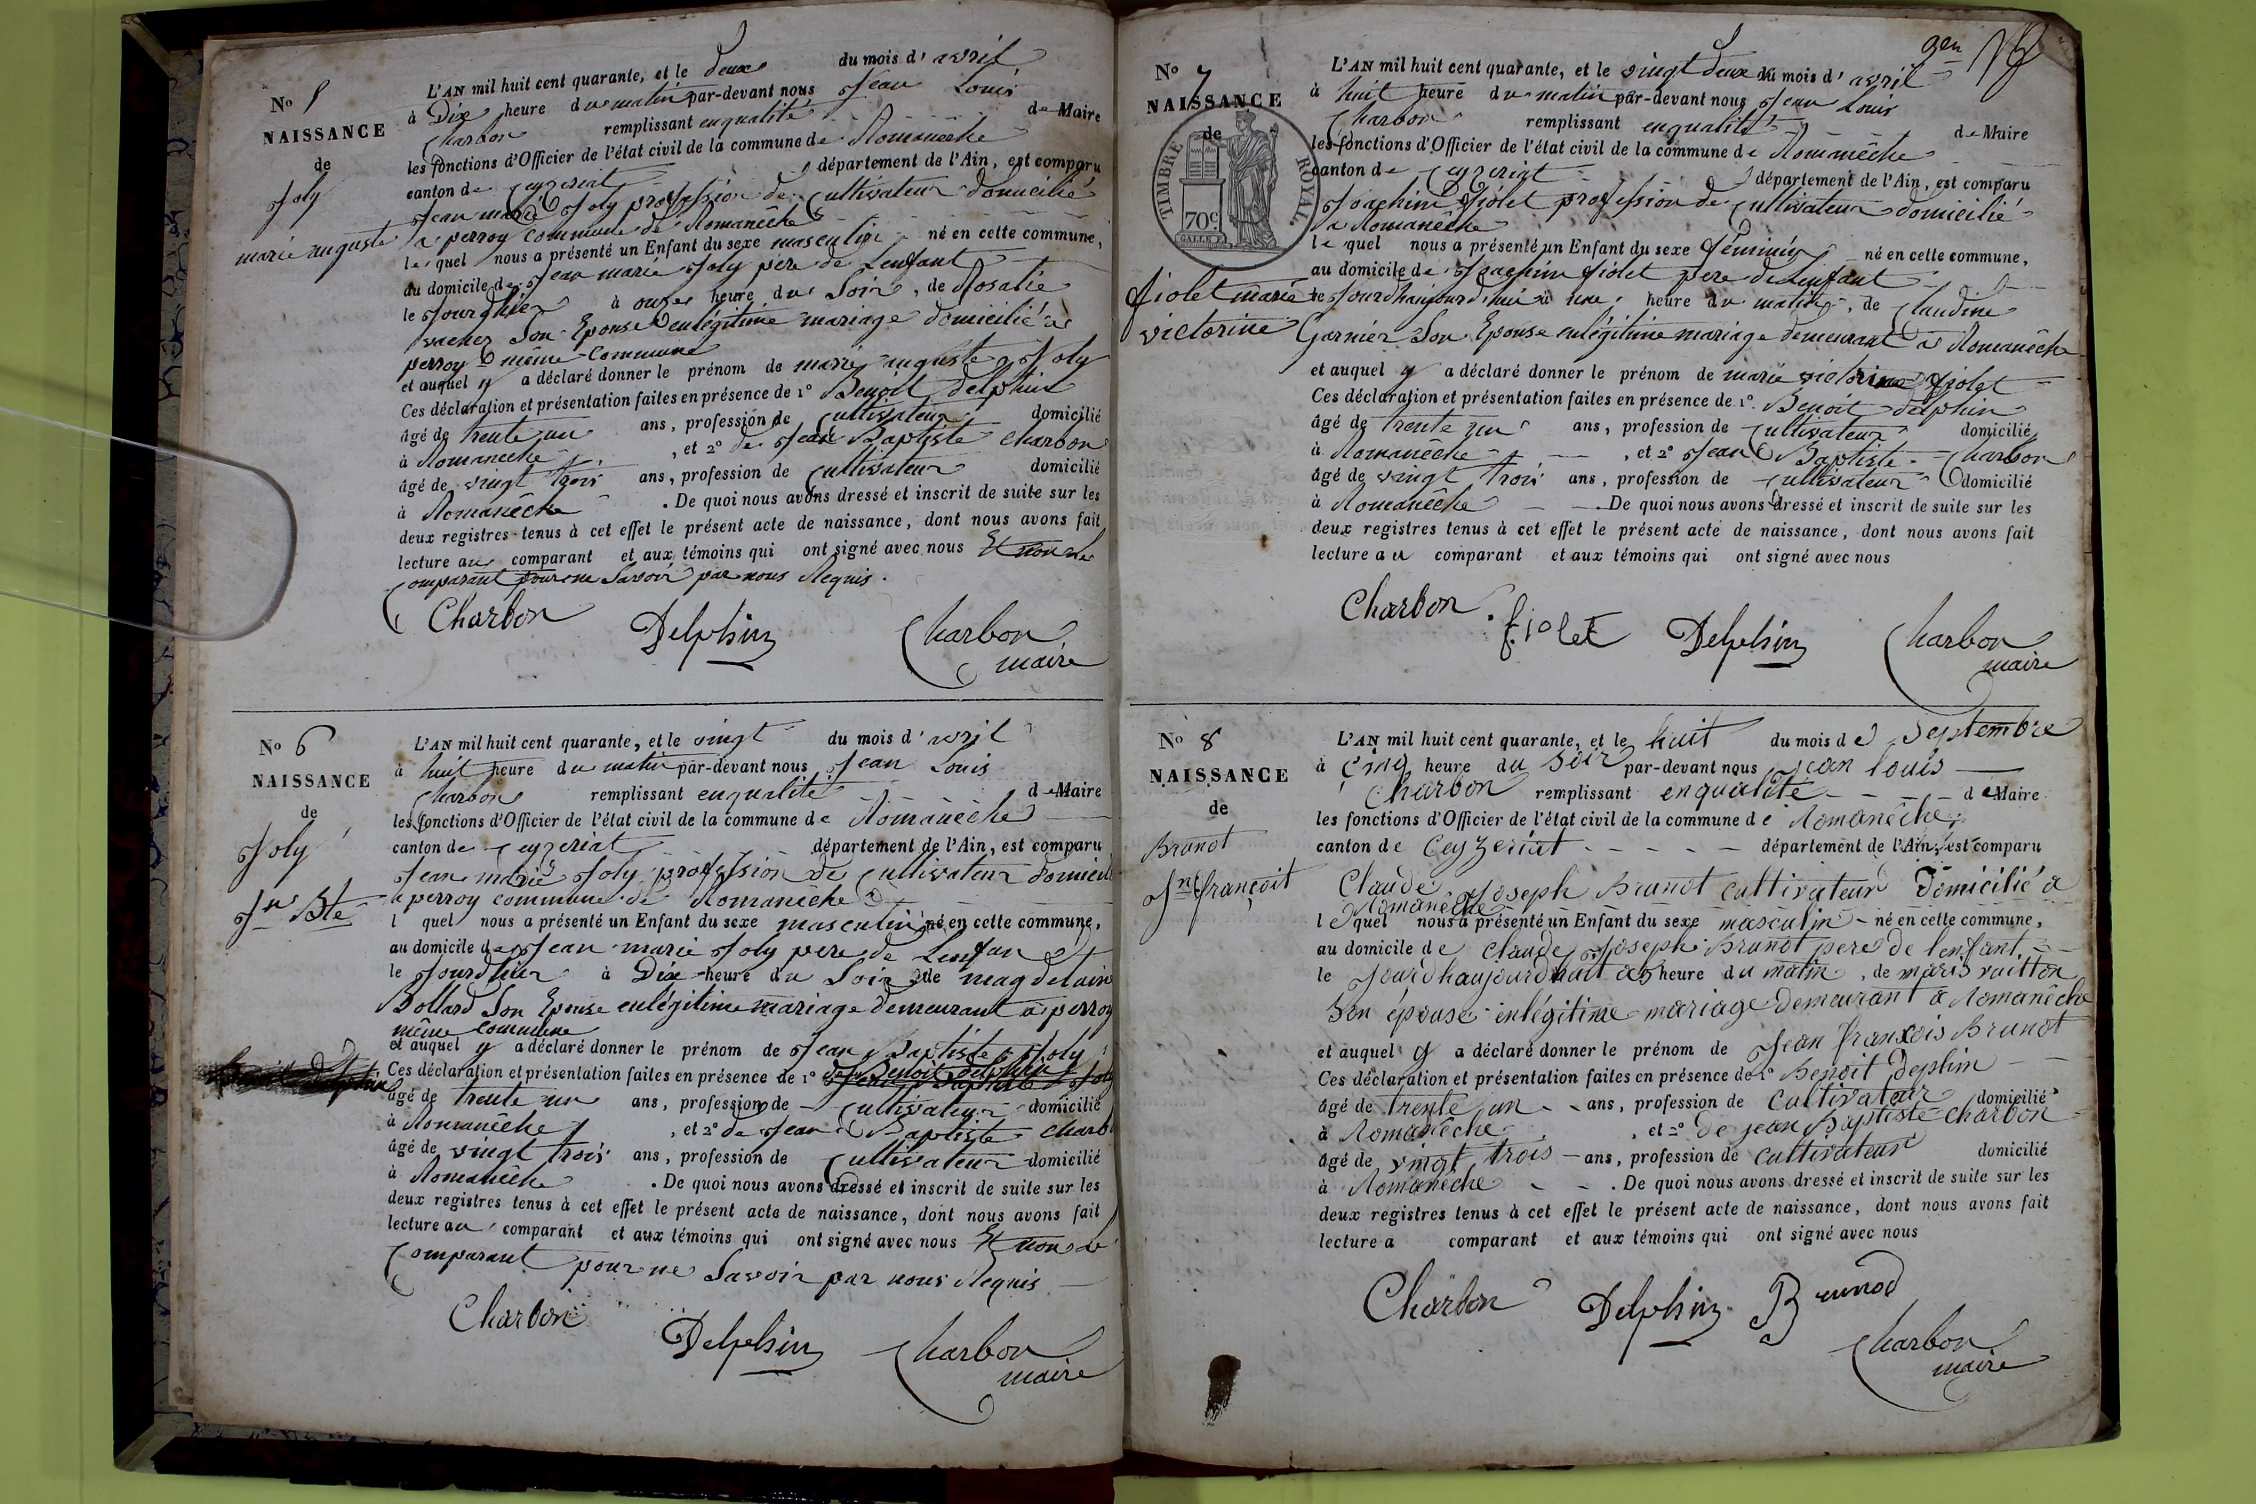 No 5
NAISSANCE
de
Joly
marie auguste
L'AN mil huit cent quarante, et le deux du mois d' avril
à Dix heure du matin par-devant nous Jean Louis
Charbon remplissant en qualité de Maire
les fonctions d'Officier de l'état civil de la commune de Romanêche
canton de Ceyzeriat département de l'Ain, est comparu
Jean marie Joly profession de Cultivateur domicilié
a perroy commune de Romanêche
le quel nous a présenté un Enfant du sexe masculin né en cette commune,
au domicile de Jean marie Joly père de Lenfant
le Jourdhier à onze heure du Soir, de Rosalie
vacher Son Epouse en légitime mariage domicilié a
perroy même Commune
et auquel y a déclaré donner le prénom de marie auguste Joly
Ces déclaration et présentation faites en présence de 1° Benoit Delphin
âgé de trente un ans, profession de Cultivateur domicilié
à Romanêche, et 2° de Jean Baptiste Charbon
âgé de vingt trois ans, profession de Cultivateur domicilié
à Romanêche. De quoi nous avons dressé et inscrit de suite sur les
deux registres tenus à cet effet le présent acte de naissance, dont nous avons fait
lecture au comparant et aux témoins qui ont signé avec nous Et non le
Comparant pour ne Savoir par nous Requis.
Charbon Delphin Charbon
maire
No 6
NAISSANCE
de
Joly
Jn Bte
L'AN mil huit cent quarante, et le vingt du mois d' avril
à huit heure du matin par-devant nous Jean Louis
Charbon remplissant en qualité de Maire
les fonctions d'Officier de l'état civil de la commune de Romanêche
canton de Ceyzeriat département de l'Ain, est comparu
Jean marie Joly profession de Cultivateur domicil
a perroy commune de Romanêche
l quel nous a présenté un Enfant du sexe masculin né en cette commune,
au domicile de Jean marie Joly pere de Lenfan
le Jourdhier à Dix heure du Soir de magdelaine
Bollard Son Epouse en légitime mariage Demeurant a perroy
même commune
et auquel y a déclaré donner le prénom de Jean Baptiste Joly
Ces déclaration et présentation faites en présence de 1° Benoit delphin
âgé de trente un ans, profession de Cultivateur domicilié
à Romanêche, et 2° de Jean Baptiste Charb
âgé de vingt trois ans, profession de Cultivateur domicilié
à Romanêche. De quoi nous avons dressé et inscrit de suite sur les
deux registres tenus à cet effet le présent acte de naissance, dont nous avons fait
lecture au comparant et aux témoins qui ont signé avec nous Et non le
Comparant pour ne Savoir par nous Requis
Charbon Delphin Charbon
maire
No 7
NAISSANCE
de
TIMBRE ROYAL
70c
fiolet marie
victorine
L'AN mil huit cent quarante, et le vingt deux du mois d' avril
à huit heure du matin par-devant nous Jean Louis
Charbon remplissant en qualité de Maire
les fonctions d'Officier de l'état civil de la commune de Romanêche
canton de Ceyzeriat département de l'Ain, est comparu
Joachim fiolet profession de Cultivateur domicilié
a Romanêche
le quel nous a présenté un Enfant du sexe féminin né en cette commune,
au domicile de Joachim fiolet pere de Lenfant
le Jourdhaujourdhui à une heure du matin, de Claudine
Garnier Son Epouse en légitime mariage demeurant a Romanêche
et auquel y a déclaré donner le prénom de marie victorine fiolet
Ces déclaration et présentation faites en présence de 1° Benoit delphin
âgé de trente un ans, profession de Cultivateur domicilié
à Romanêche, et 2° Jean Baptiste Charbon
âgé de vingt trois ans, profession de Cultivateur domicilié
à Romanêche. De quoi nous avons dressé et inscrit de suite sur les
deux registres tenus à cet effet le présent acte de naissance, dont nous avons fait
lecture au comparant et aux témoins qui ont signé avec nous
Charbon fiolet Delphin Charbon
maire
No 8
NAISSANCE
de
Brunot
Jn françoit
L'AN mil huit cent quarante, et le huit du mois de Septembre
à Cinq heure du Soir par-devant nous jean louis
Charbon remplissant en qualité de Maire
les fonctions d'Officier de l'état civil de la commune de Romanêche
canton de Ceyzeriat département de l'Ain, est comparu
Claude Joseph Brunot cultivateur Domicilié a
Romanêche
le quel nous a présenté un Enfant du sexe masculin né en cette commune,
au domicile de claude Joseph Brunot pere de lenfant
le Jourdhaujourdhuit à 5 heure du matin, de marie vuitton
Son épouse en légitime mariage Demeurant a Romanêche
et auquel y a déclaré donner le prénom de Jean françois Brunot
Ces déclaration et présentation faites en présence de 1° Benoit Deplin
âgé de trente un ans, profession de cultivateur domicilié
à Romanêche, et 2° De jean Baptiste Charbon
âgé de vingt trois ans, profession de cultivateur domicilié
à Romanêche. De quoi nous avons dressé et inscrit de suite sur les
deux registres tenus à cet effet le présent acte de naissance, dont nous avons fait
lecture a comparant et aux témoins qui ont signé avec nous
Charbon Delphin Brunod
Charbon
maire